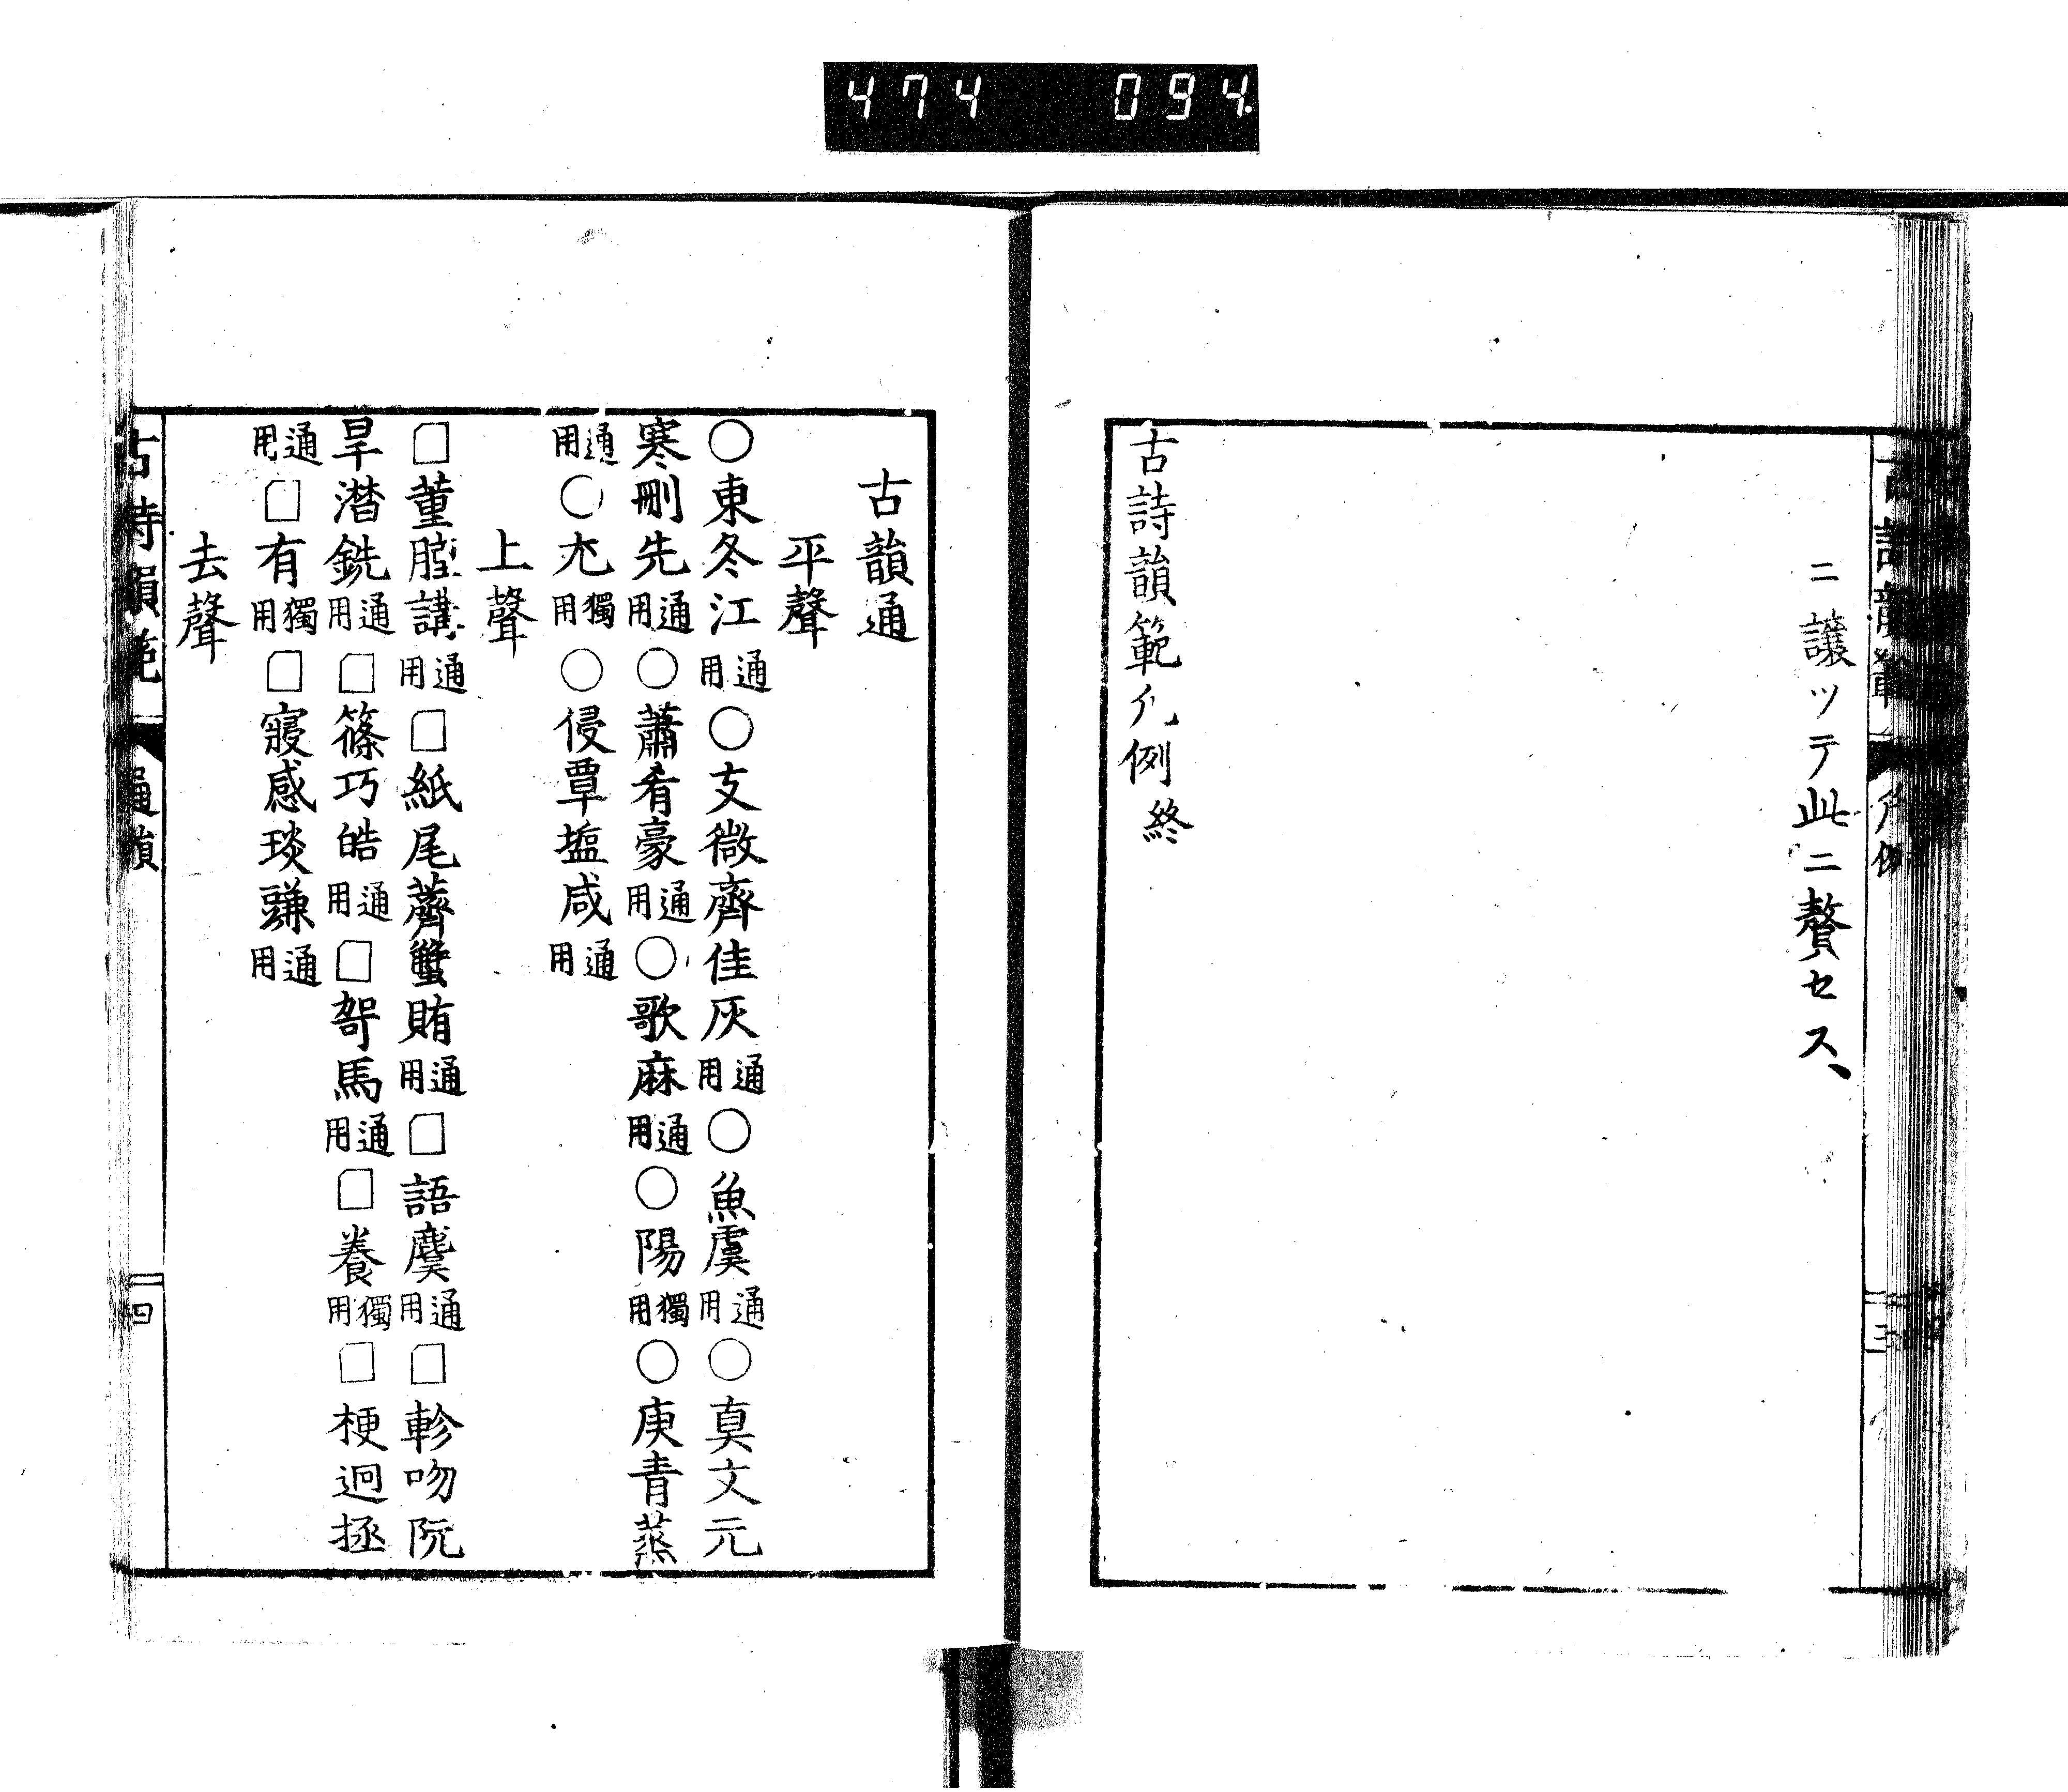 474 094
ニ譲ツテ此ニ贅セス、
古詩韻範凡例終
古韻通
平聲
○東冬江通用○支微齊佳灰通用○魚虞通用○真文元
寒刪先通用○蕭肴豪通用○歌麻通用○陽獨用○庚青蒸
通用○尤獨用○侵覃塩咸通用
上聲
□董腫講通用□紙尾薺蟹賄通用□語麌通用□軫吻阮
旱潸銑通用□篠巧皓通用□哿馬通用□養獨用□梗迥拯
通用□有獨用□寑感琰豏通用
去聲
古詩韻範 通韻 四